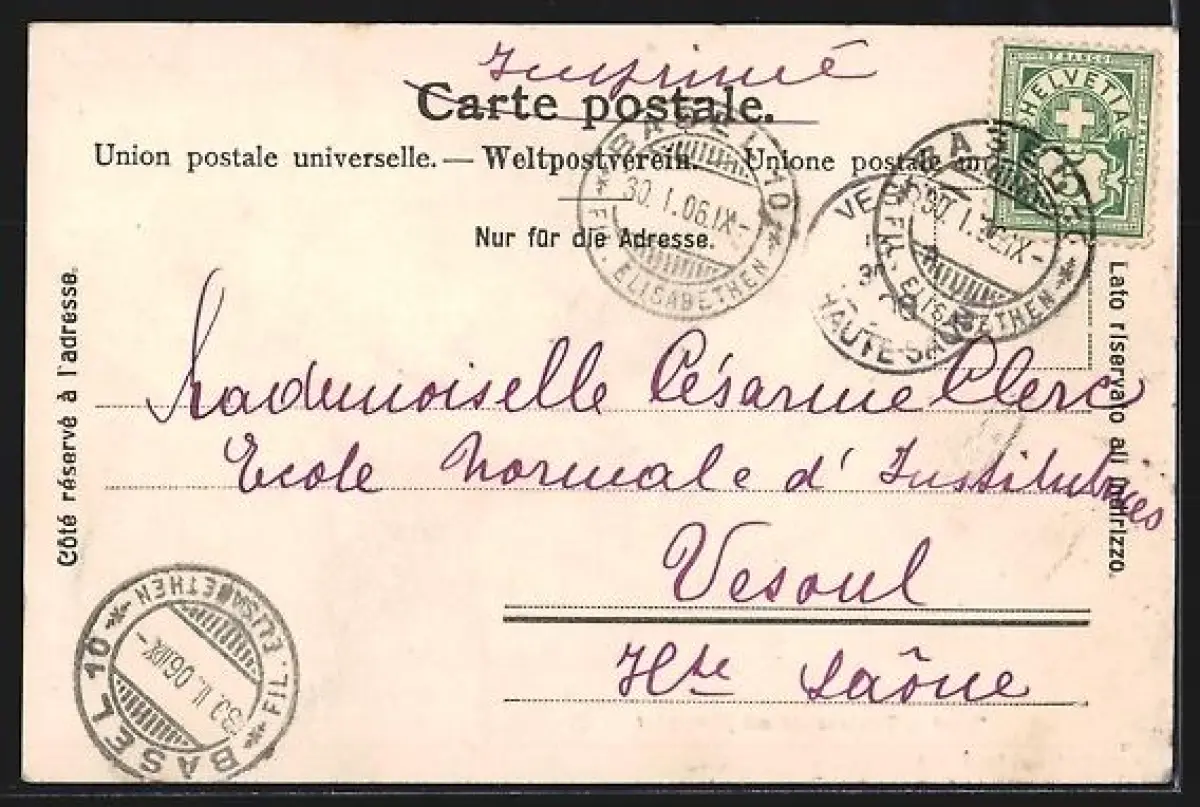 Imprimé
Carte postale.
Union postale universelle. — Weltpostverein. — Unione postale
Nur für die Adresse.
FRANCO
HELVETIA
5
BASEL 10
30. I. 06. IX-
FIL. ELISABETHEN
BASEL 10
30. I. 06. IX-
FIL. ELISABETHEN
VE
HAUTE-SAÔNE
Côté réservé à l'adresse.
Lato riservato all' indirizzo.
Mademoiselle Césarine Clerc
Ecole Normale d'Institutrices
Vesoul
Hte Saône
BASEL 10
FIL. ELISABETHEN